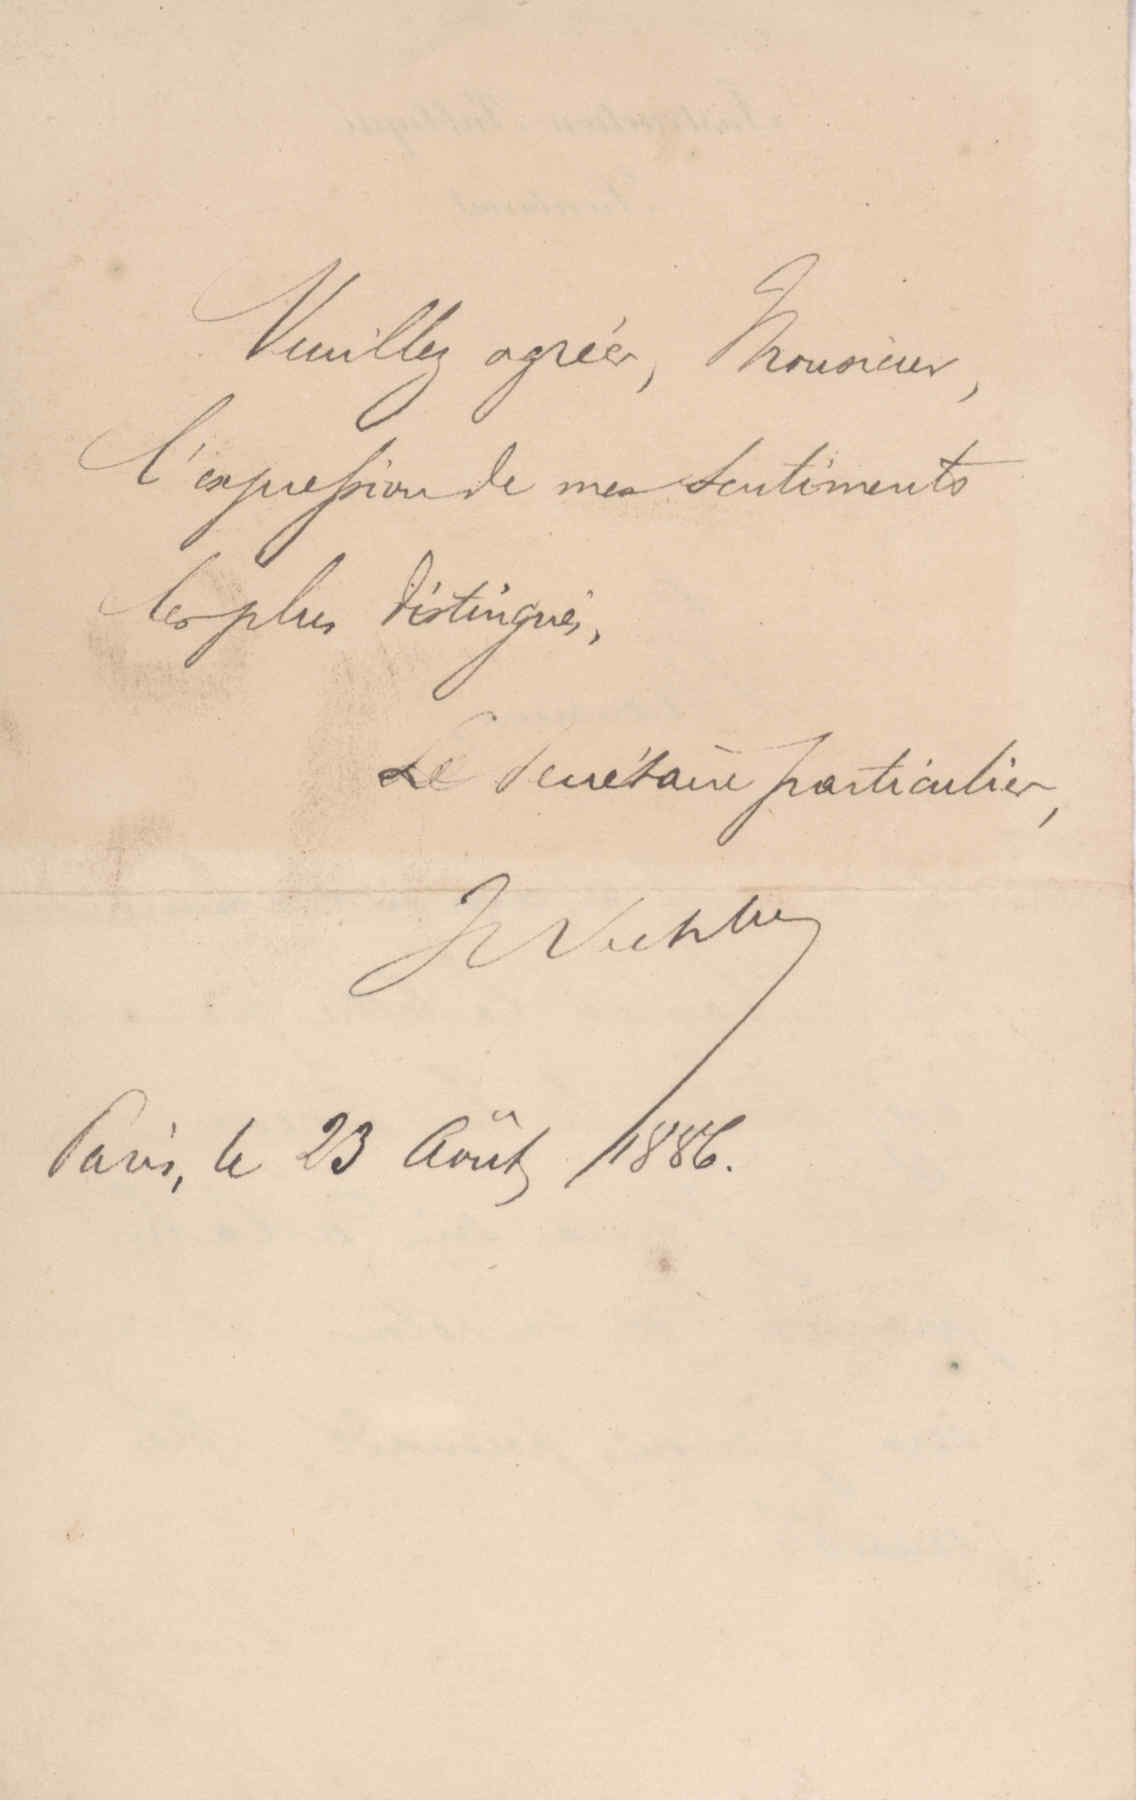 Veuillez agréer, Monsieur,
l'expression de mes sentiments
les plus distingués,
Le Secrétaire particulier,
Paris, le 23 Août 1886.